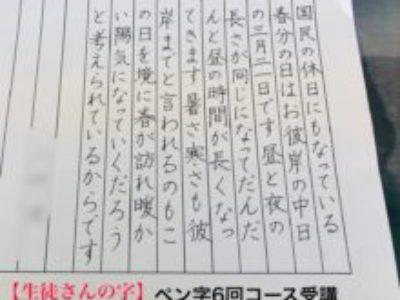 国民の休日にもなっている
春分の日はお彼岸の中日
の三月二一日です昼と夜の
長さが同じになってだんだ
んと昼の時間が長くなっ
てきます暑さ寒さも彼
岸までと言われるのもこ
の日を境に春が訪れ暖か
い陽気になっていくだろう
と考えられているからです
【生徒さんの字】ペン字6回コース受講